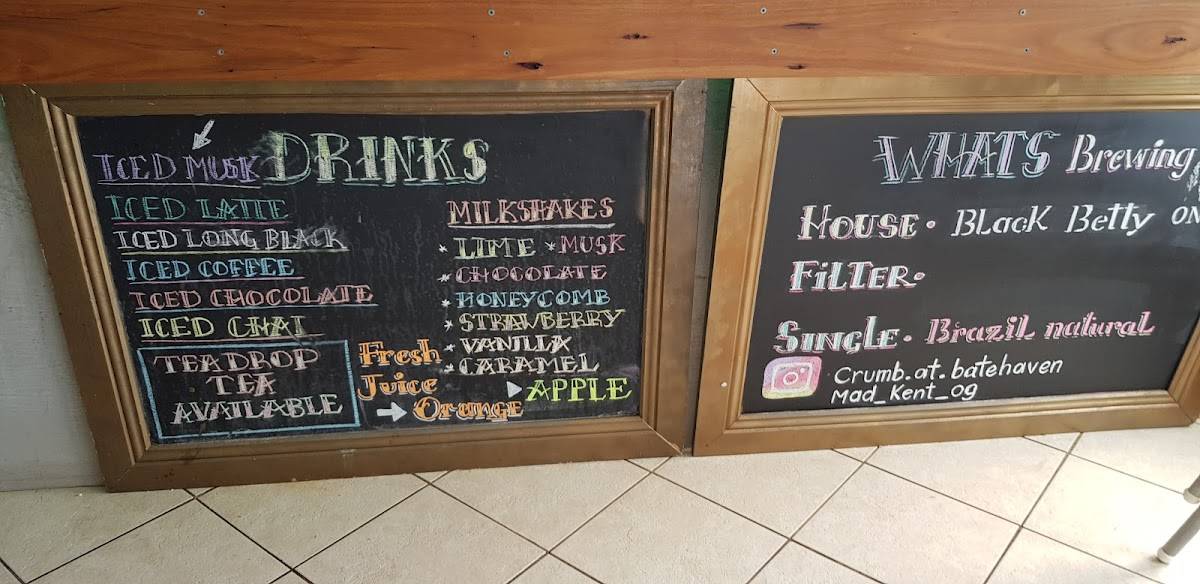 DRINKS
ICED MUSK
ICED LATTE
ICED LONG BLACK
ICED COFFEE
ICED CHOCOLATE
ICED CHAI
TEA DROP
TEA
AVAILABLE
MILKSHAKES
* LIME * MUSK
* CHOCOLATE
* HONEYCOMB
* STRAWBERRY
* VANILLA
* CARAMEL
Fresh
Juice
Orange
APPLE
WHATS Brewing
HOUSE. BLACK Betty
FILTER.
SINGLE. Brazil natural
Crumb.at.batehaven
Mad_Kent_og